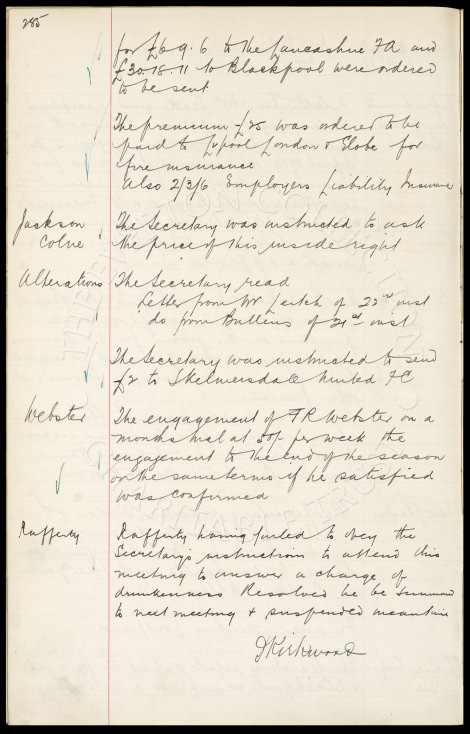 285
for £69.6 to the Lancashire FA and
£30.18.11 to Blackpool were ordered
to be sent
The premium £25 was ordered to be
paid to L'pool London & Globe for
fire insurance
Also 2/3/6 Employers Liability Insurance
Jackson
Colne
The Secretary was instructed to ask
the price of this inside right
Alterations
The Secretary read
Letter from Mr Leitch of 22nd inst
do from Bullens of 21st inst
The Secretary was instructed to send
£2 to Skelmersdale United FC
Webster
The engagement of FR Webster on a
months trial at 50/- per week the
engagement to the end of the season
on the same terms if he satisfied
was confirmed
Rafferty
Rafferty having failed to obey the
Secretary's instructions to attend this
meeting to answer a charge of
drunkenness Resolved he be summoned
to next meeting & suspended meantime
D Kirkwood